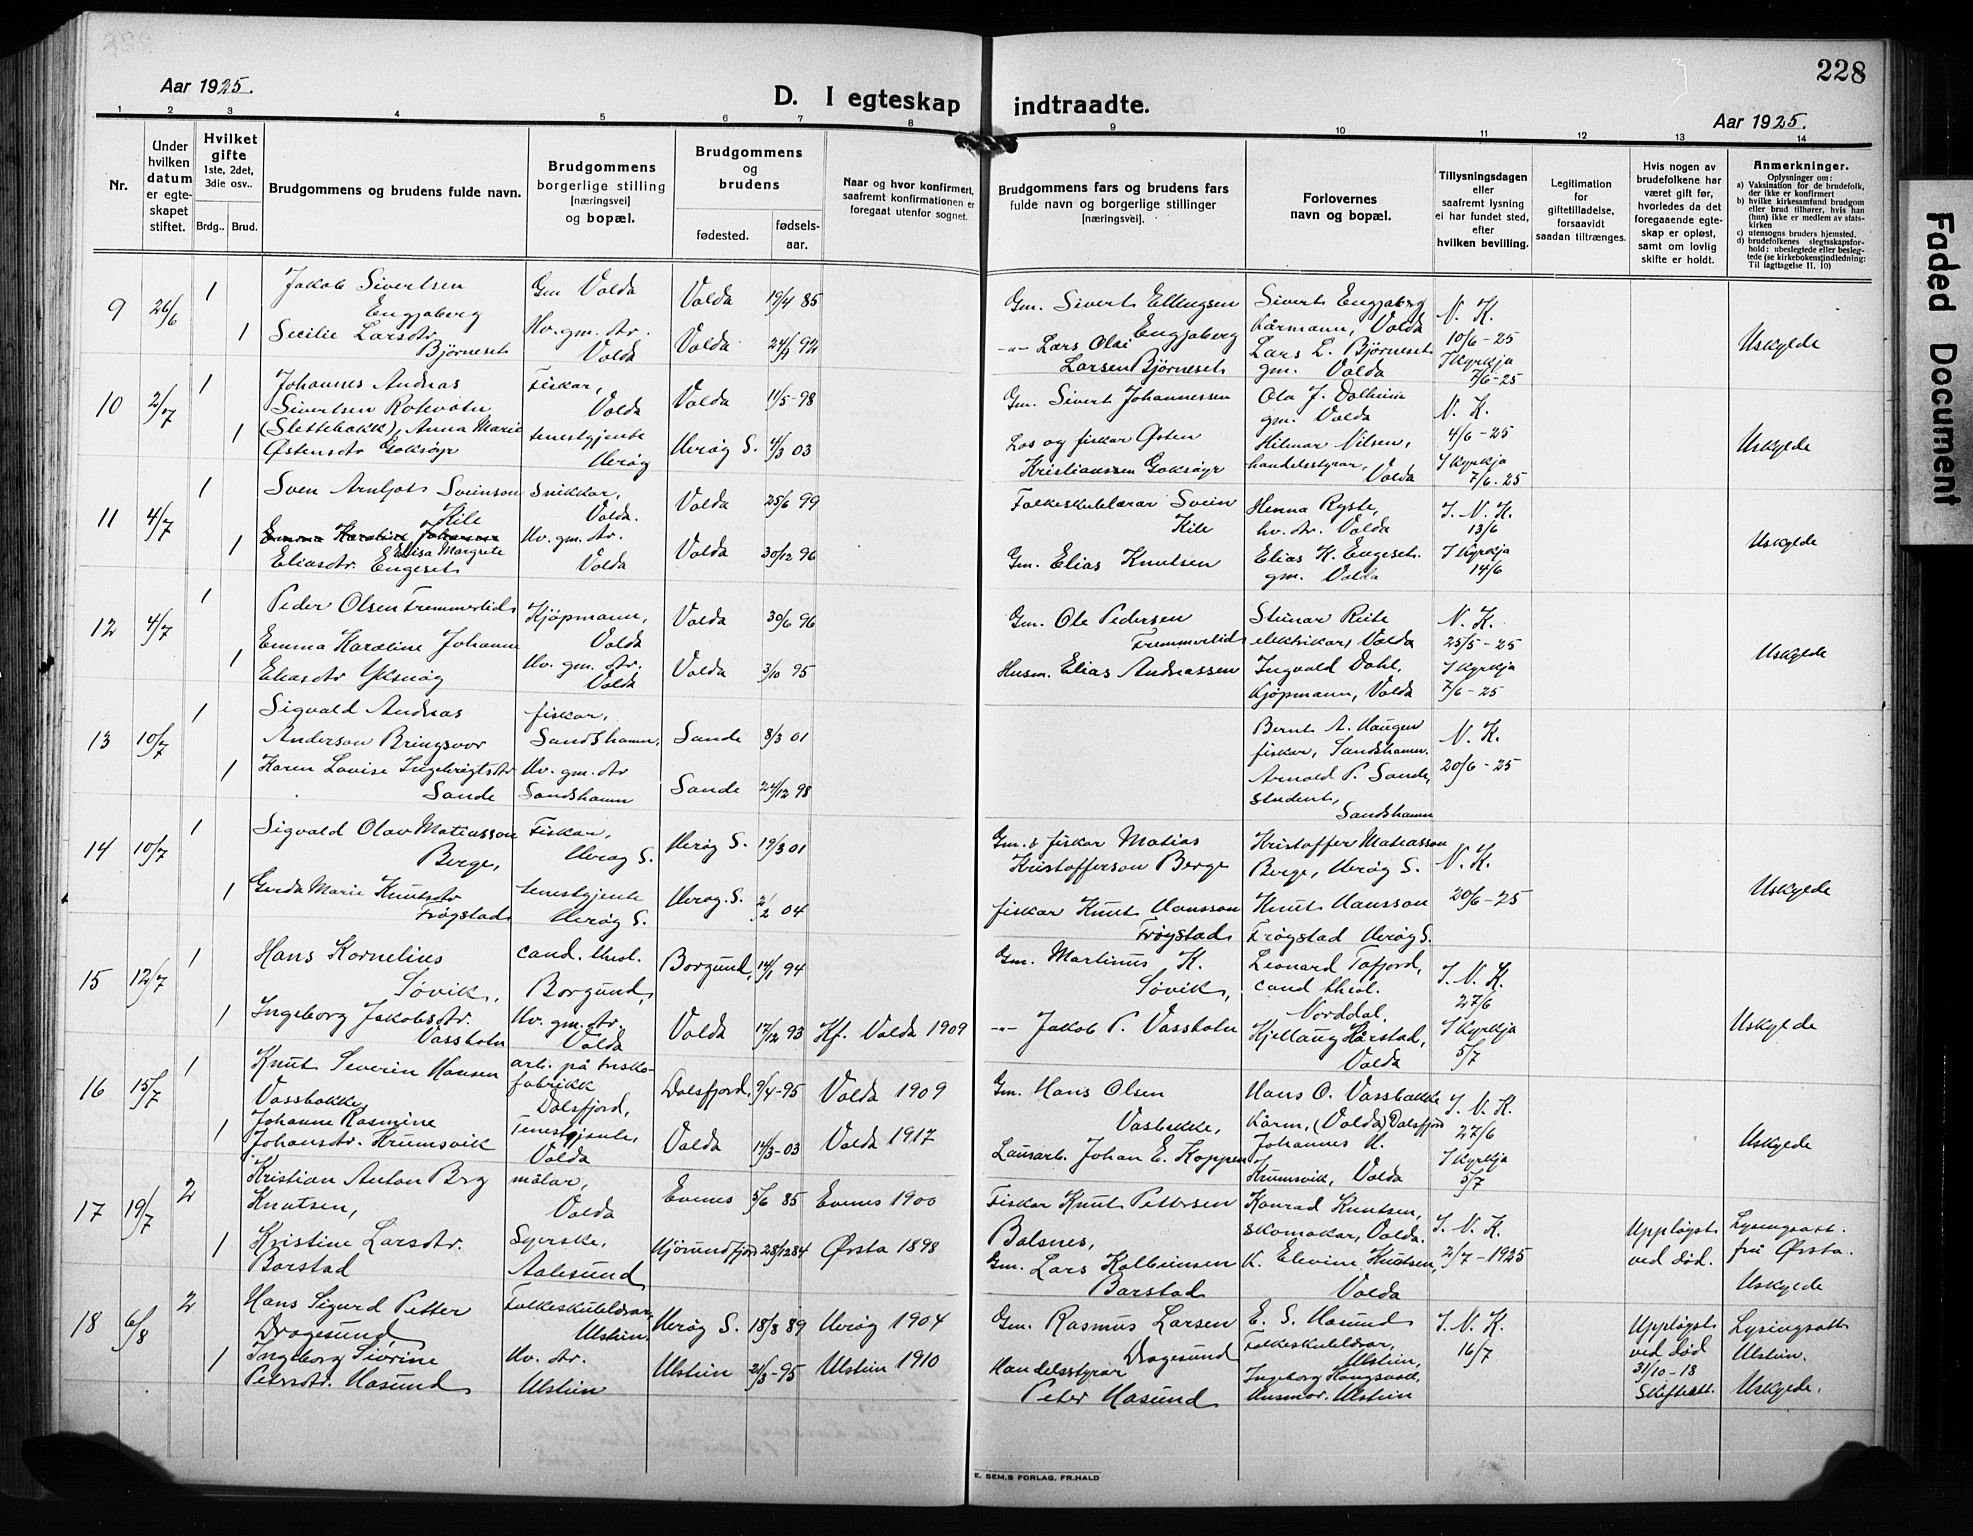 228
Aar 1925.
D. I egteskap indtraadte.
Aar 1925.
1 2 3 4 5 6 7 8 9 10 11 12 13 14
Nr.
Under hvilken datum er egteskapet stiftet.
Hvilket gifte 1ste, 2det, 3die osv..
Brdg.. Brud.
Brudgommens og brudens fulde navn.
Brudgommens borgerlige stilling [næringsvei] og bopæl.
Brudgommens og brudens
fødested.
fødselsaar.
Naar og hvor konfirmert, saafremt konfirmationen er foregaat utenfor sognet.
Brudgommens fars og brudens fars fulde navn og borgerlige stillinger [næringsvei].
Forlovernes navn og bopæl.
Tillysningsdagen eller saafremt lysning ei har fundet sted, efter hvilken bevilling.
Legitimation for giftetilladelse, forsaavidt saadan tiltrænges.
Hvis nogen av brudefolkene har været gift før, hvorledes da det foregaaende egteskap er opløst, samt om lovlig skifte er holdt.
Anmerkninger.
Oplysninger om:
a) Vaksination for de brudefolk, der ikke er konfirmert
b) hvilke kirkesamfund brudgom eller brud tilhører, hvis han (hun) ikke er medlem av statskirken
c) utensogns bruders hjemsted.
d) brudefolkenes slegtsskapsforhold: ubeslegtede eller beslegtede (se kirkebokens indledning: Til Iagttagelse II. 10)
9 26/6 1 Jakob Sivertsen Engjaberg Gm Volda Volda 19/4 85 Gm. Sivert Ellingsen Engjaberg Sivert Engjaberg kårmann, Volda N. K. 10/6-25
1 Secilie Larsdtr Bjørneset Hv. gm. dtr. Volda Volda 92 -"- Lars Olai Larsen Bjørneset Lars L. Bjørneset gm. Volda I kyrkja 7/6-25 Uskylde
10 2/7 1 Johannes Andreas Sivertsen Rotevatn (Slettebakk), Fiskar, Volda Volda 11/5-98 Gm. Sivert Johannessen Ola J. Dalheim gm. Volda N. K. 4/6-25
1 Anna Marie Østensdtr Goksøyr tenestgjente Herøy Herøy S. 4/3 03 Los og fiskar Østen Kristianssen Goksøyr Hilmar Nilsen, handelsstyrar, Volda I kyrkja 7/6-25 Uskylde
11 4/7 1 Sven Arnljot Sveinson Kile Snikkar, Volda. Volda 25/6 99 Folkeskulelærar Svein Kile Henna Ryste, hv. dtr. Volda I. N. K. 13/6
1 Elisa Margrete Eliasdtr. Engeset Hv. gm. dtr. Volda Volda 30/12 96 Gm. Elias Knutsen Elias K. Engeset. gm. Volda I kyrkja 14/6 Uskylde
12 4/7 1 Peder Olsen Fremmerlid Kjøpmann, Volda Volda 30/6 96 Gm. Ole Pedersen Fremmerlid Steinar Reite elektrikar, Volda N. K. 25/5-25
1 Emma Karoline Johanne Eliasdtr Yksnøy Hv. gm. dtr. Volda Volda 3/10 95 Husm. Elias Andreassen Ingvald Dahl, Kjøpmann, Volda I kyrkja 7/6-25 Uskylde
13 10/7 1 Sigvald Andreas Anderson Bringsvor fiskar, Sandshamn, Sande 8/3 01 Bernt A. Haugen fiskar, Sandshamn. N. K.
1 Karen Lovise Ingebrigtsdtr Sande Hv. gm. dtr Sandshamn Sande 24/12 98 Arnold P. Sande, student, Sandshamn 20/6-25
14 10/7 1 Sigvald Olav Matiasson Berge, Fiskar, Herøy S. Herøy S. 19/3 01 Gm. & fiskar Matias Kristofferson Berge Kristoffer Matiasson Berge, Herøy S. N. K.
1 Gerda Marie Knutsdtr Frøystad tenestgjente Herøy S. Herøy. S. 2/2 04 fiskar Knut Hansson Frøystad Knut Hansson Frøystad Herøy S. 20/6-25 Uskylde
15 12/7 1 Hans Kornelius Søvik, cand. theol. Borgund, Borgund, 14/1 94 Gm. Martinus K. Søvik, Leonard Tafjord, cand theol. Norddal, I. N. K. 27/6
1 Ingeborg Jakobsdtr. Vassbotn Hv. gm. dtr. Volda Volda 17/12 93 Kf. Volda 1909 -"- Jakob P. Vassbotn Kjellaug Hårstad, Volda I kyrkja 5/7 Uskylde
16 15/7 1 Knut Severin Hansen Vassbakke, arb. på fabrikk Dalsfjord, Dalsfjord, 9/4-95 Volda 1909 Gm. Hans Olsen Vasbakke, Hans O. Vassbakke Kårm, (Volda) Dalsfjord I. N. K. 27/6
1 Johanne Rasmine Johansdtr. Krumsvik Tenestgjente, Volda Volda 14/3-03 Volda 1917 Lausarb. Johan E. Koppen Johannes H. Krumsvik, Volda I kyrkja 5/7 Uskylde
17 19/7 2 Kristian Anton Berg Knutsen, målar, Volda Evenes 5/6 85 Evenes 1900 Fiskar Knut Pettersen Balsnes, Konrad Knutsen, skomakar, Volda. I. N. K. Uppløyst ved død. Lysingsatt. frå Ørsta.
1 Kristine Larsdtr. Barstad Syerske, Aalesund Hjørundfjord 28/12 84 Ørsta 1898 Gm. Lars Kolbeinsen Barstad K. Elevine Knutsen, Volda 2/7-1925 Uskylde
18 6/8 2 Hans Sigurd Petter Dragesund Folkeskulelærar, Ulstein. Herøy S. 18/8 89 Herøy 1904 Gm. Rasmus Larsen Dragesund E. S. Hasund Folkeskulelærar, Ulstein, I. N. K. 16/7 Uppløyst ved død 31/10-18 Skifteatt. Lysingsatt Ulstein.
1 Ingeborg Siorine Petersdtr. Hasund Hv. dtr. Ulstein Ulstein 21/3-95 Ulstein 1910 Handelsstyrar Peter Hasund Ingeborg Husmor. Ulstein Uskylde.
E. SEM,S FORLAG, FR.HALD
Faded Document